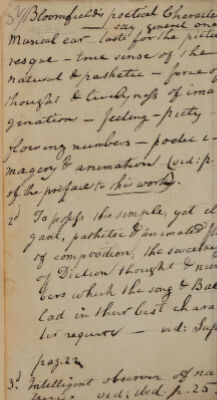 Bloomfield's poetical Character
Musical ear - taste for the pictu
resque - true sense of the
natural & pathetic - force of
thought & livelyness of ima
gination - feeling - piety
flowing numbers - poetic i-
magery & animation (vid: p.
of the preface to this work)
2d To possess the simple, yet el
gant, pathetic & animated
of composition, the sweetne
of Diction thought & num
bers which the song & Bal
lad in their best chara
ter require - vid: Sup
pag: 22
3d Intelligent observer of na
vid: ibid. p. 25